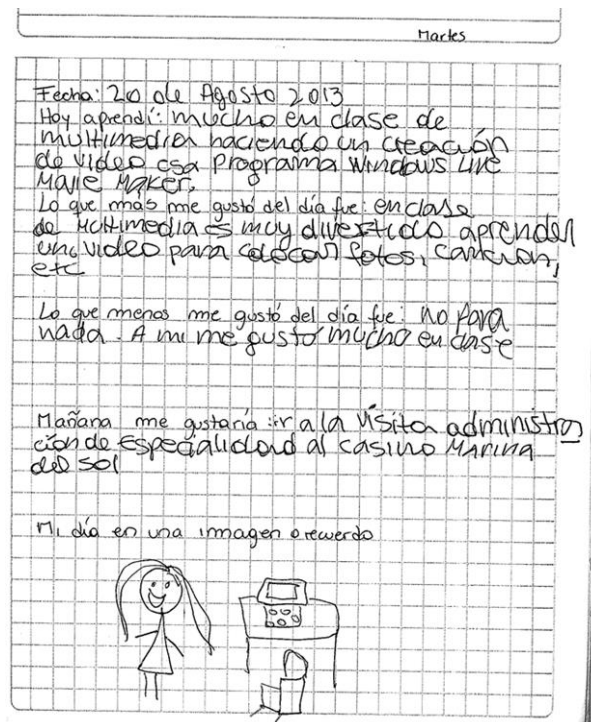 Martes
Fecha: 20 de Agosto 2013
Hoy aprendí: mucho en clase de
multimedia haciendo un creación
de video esa programa Windows Live
Movie Maker.
Lo que más me gustó del día fue: en clase
de Multimedia es muy divertido aprender
unc video para colocar fotos, canción,
etc
Lo que menos me gustó del día fue: no para
nada. A mi me gusto mucho en clase
Mañana me gustaría: ir a la visita administra
ción de especialidad al casino Marina
del sol
Mi día en una immagen o recuerdo